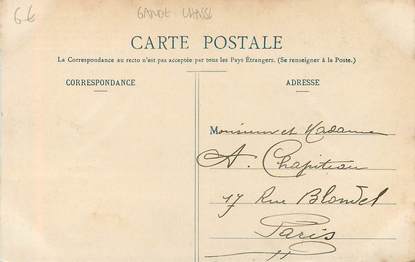 6€ GARDE-CHASSE
CARTE POSTALE
La Correspondance au recto n'est pas acceptée par tous les Pays Étrangers. (Se renseigner à la Poste.)
CORRESPONDANCE
ADRESSE
Monsieur et Madame
A. Chapiteau
17 Rue Blondel
Paris